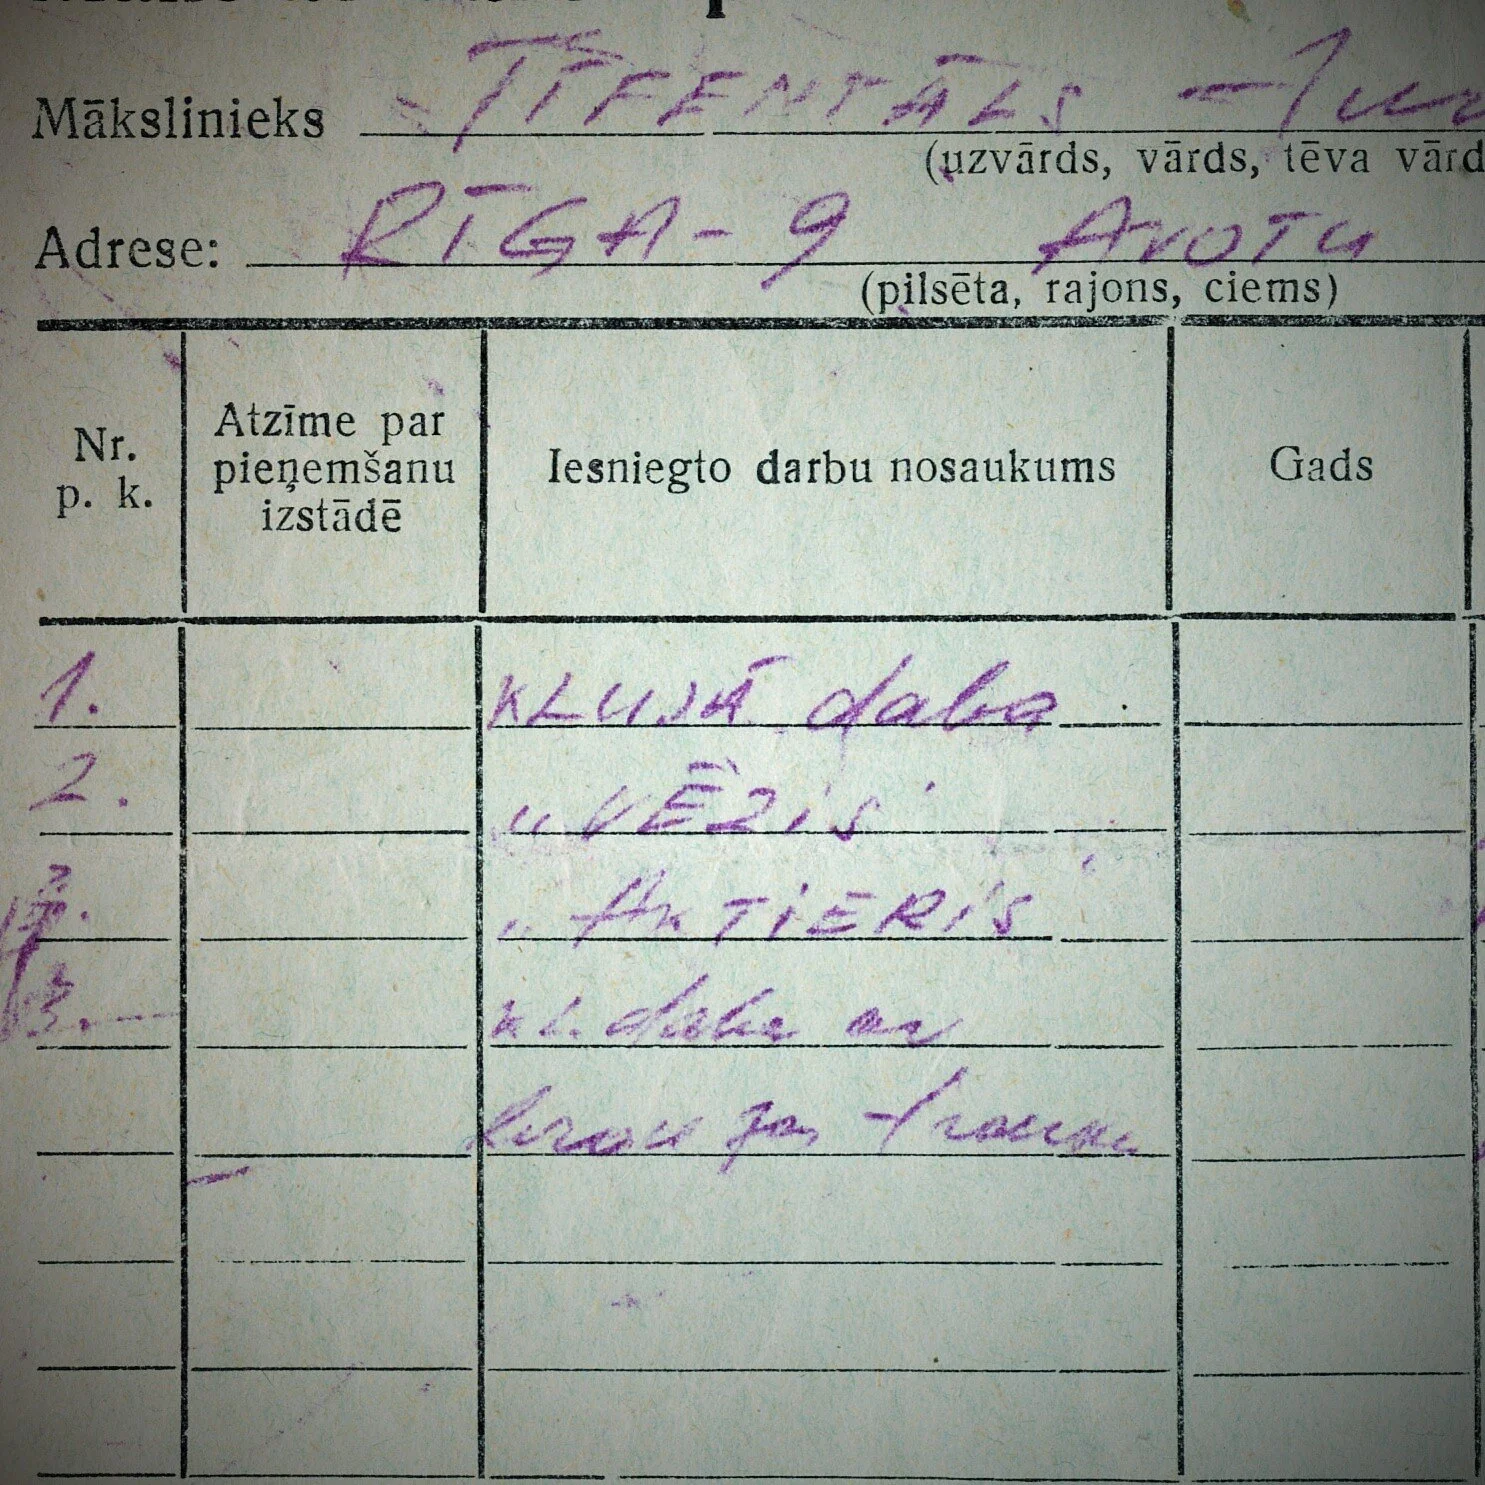 Mākslinieks TĪFENTĀLS -
(uzvārds, vārds, tēva vārd
Adrese: RĪGA-9 AVOTU
(pilsēta, rajons, ciems)
Nr. p. k.
Atzīme par pieņemšanu izstādē
Iesniegto darbu nosaukums
Gads
1. KLUSĀ daba
2. „VĒZIS"
„AKTIERIS"
3. kl. daba ar
trauku